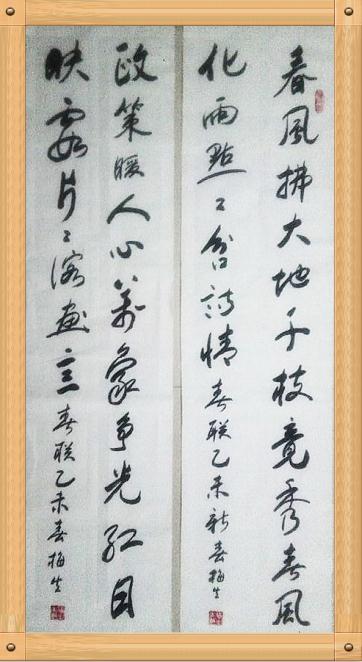 春風拂大地千枝竟秀春風
化雨點々含詩情春联乙未新春梅生
政策暖人心萬象争光红日
映霞片々溶画意春联乙未春梅生